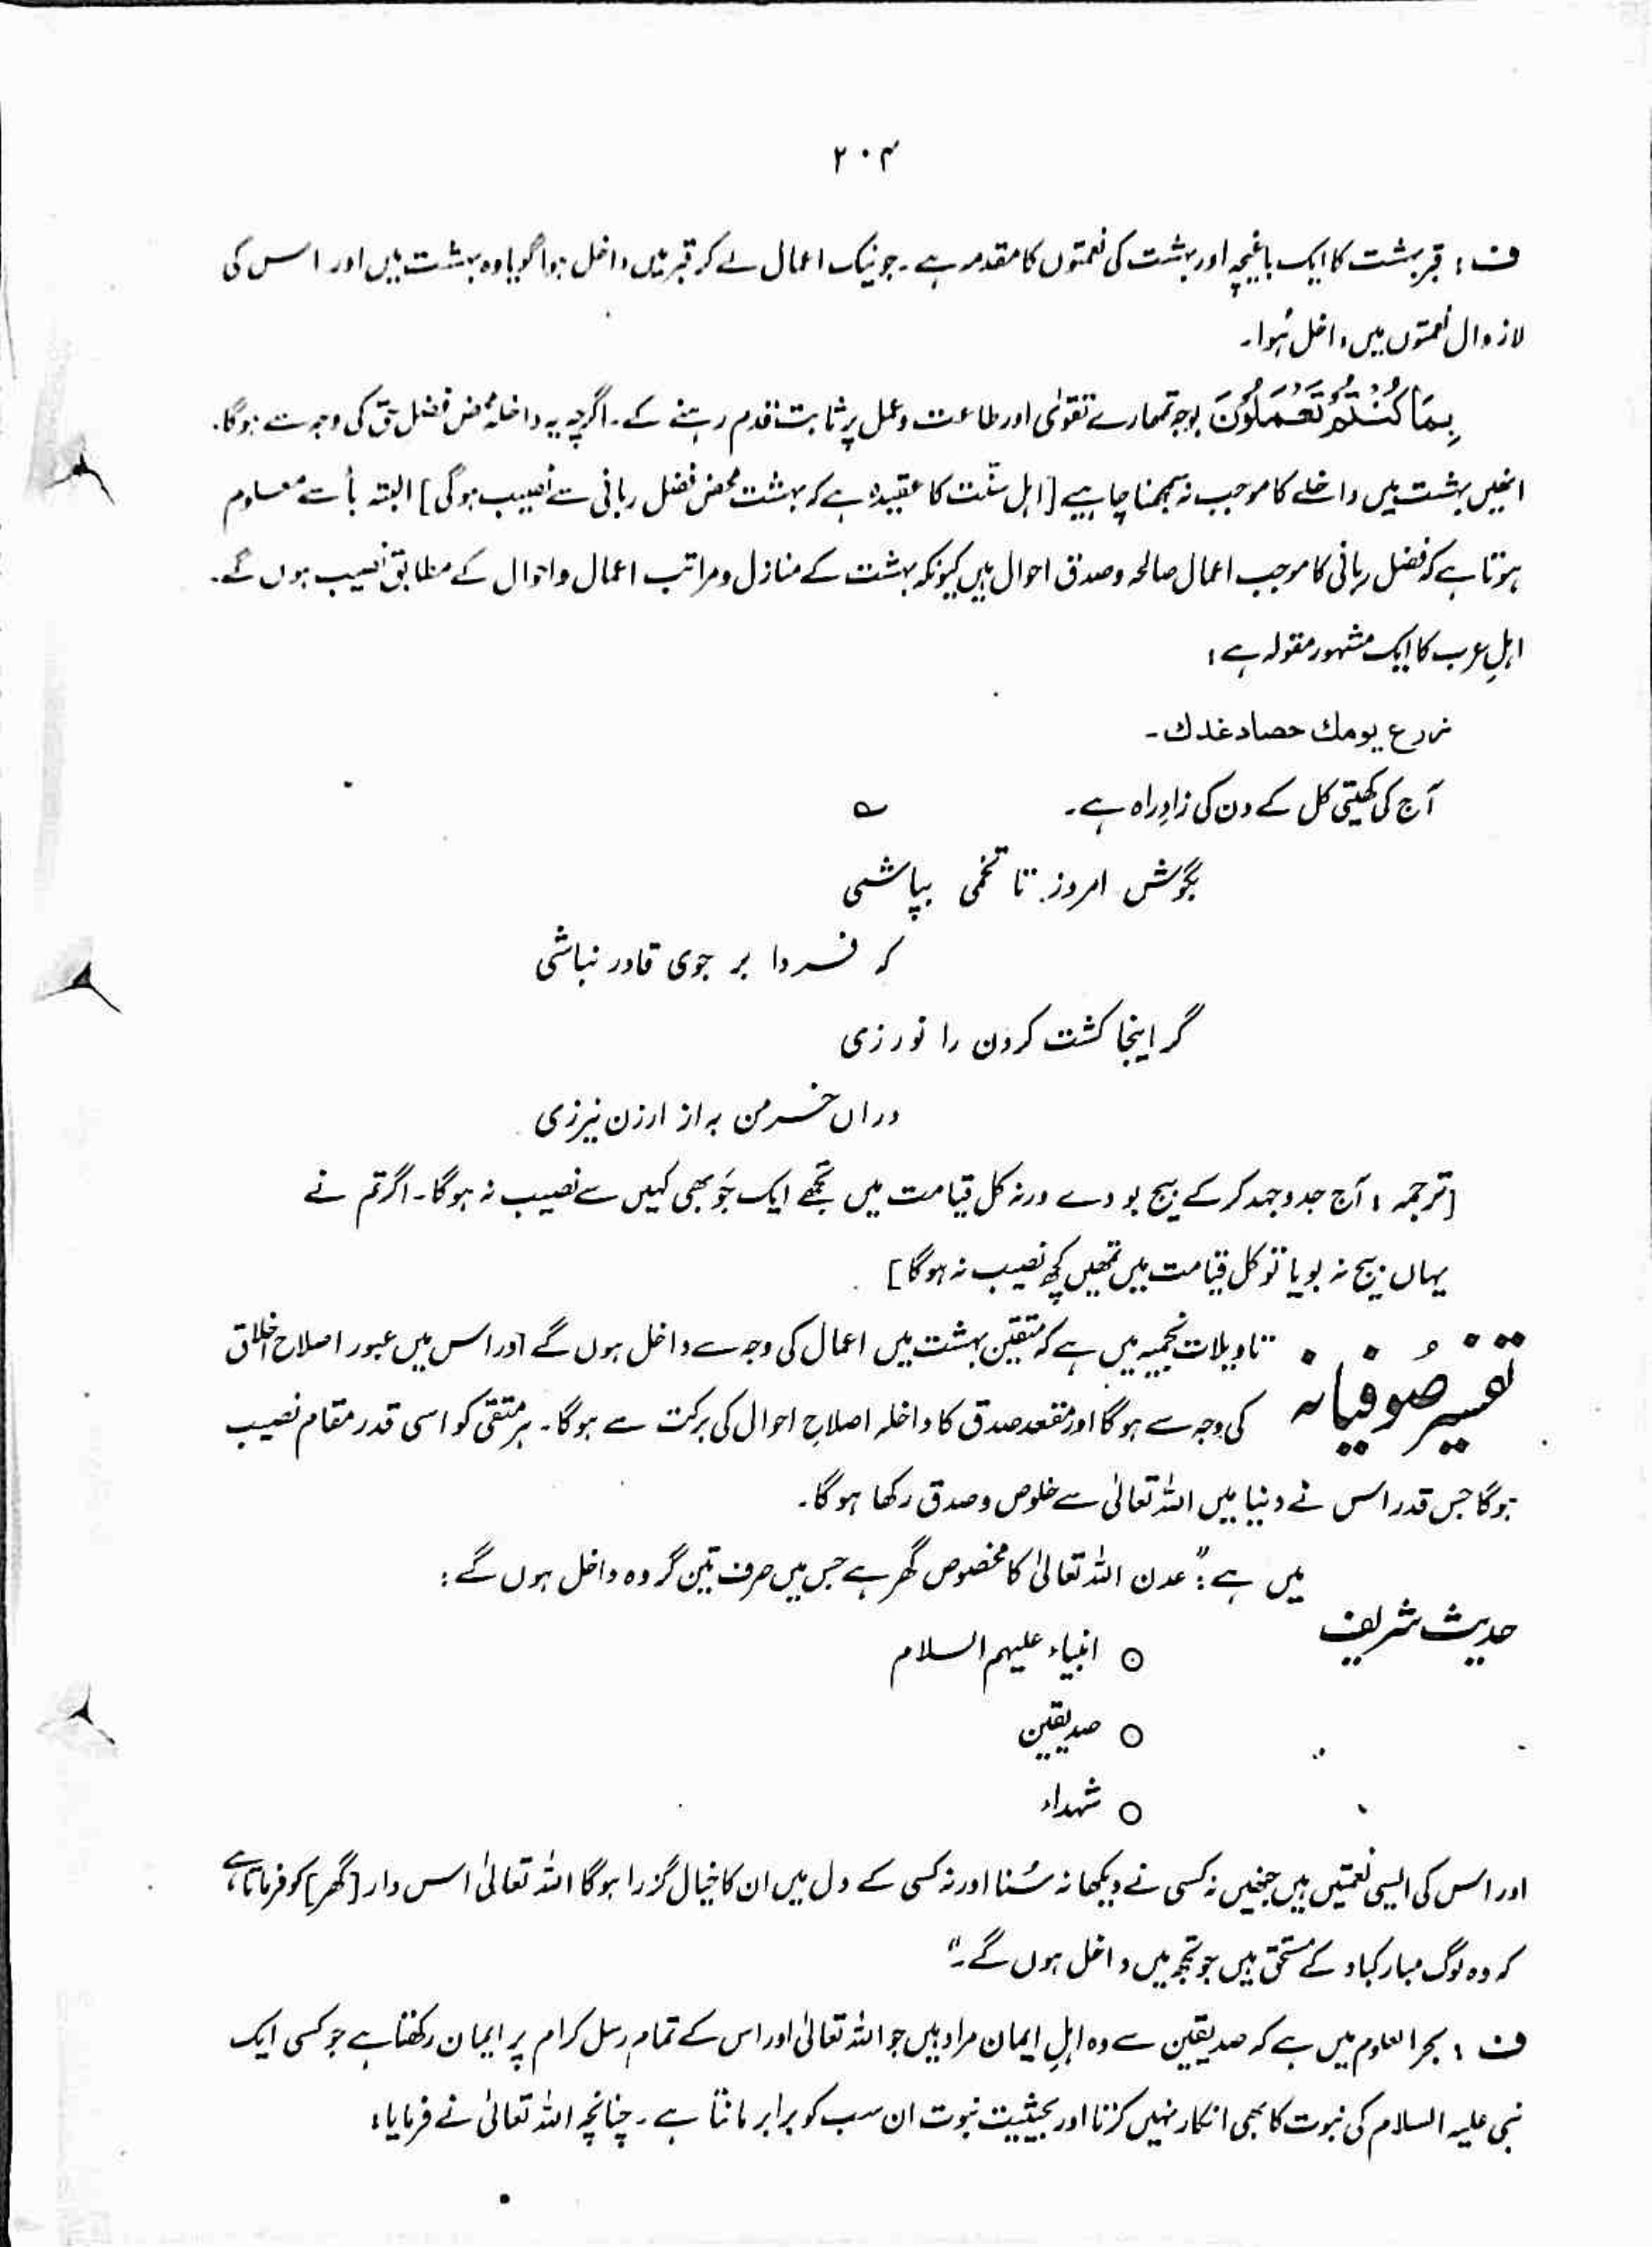 ۲۰۴
ف : قبر بہشت کا ایک باغیچہ اور بہشت کی نعمتوں کا مقدمہ ہے ۔ جو نیک اعمال لے کر قبر میں داخل ہوا گویا وہ بہشت میں اور اس کی
لازوال نعمتوں میں داخل ہُوا ۔
بِمَا كُنْتُمْ تَعْمَلُوْنَ بوجہ تمھارے تقوٰی اور طاعت و عمل پر ثابت قدم رہنے کے ۔ اگرچہ یہ داخلہ محض فضلِ حق کی وجہ سے ہوگا ۔
انھیں بہشت میں داخلے کا موجب نہ سمجھنا چاہیے [ اہل سنّت کا عقیدہ ہے کہ بہشت محض فضل ربانی سے نصیب ہوگی ] البتہ بأ سے معلوم
ہوتا ہے کہ فضل ربانی کا موجب اعمال صالحہ و صدق احوال ہیں کیونکہ بہشت کے منازل و مراتب اعمال و احوال کے مطابق نصیب ہوں گے ۔
اہلِ عرب کا ایک مشہور مقولہ ہے :
زرع يومك حصاد غدك ۔
آج کی کھیتی کل کے دن کی زادِ راہ ہے ۔ ؎
بگوش امروز تا تخمی بپاشی
کہ فردا بر جوی قادر نباشی
گر اینجا کشت کردن را نورزی
دراں خرمن بہ از ارزن نیرزی
[ ترجمہ : آج جد و جہد کر کے بیج بو دے ورنہ کل قیامت میں تجھے ایک جَو بھی کہیں سے نصیب نہ ہوگا ۔ اگر تم نے
یہاں بیج نہ بویا تو کل قیامت میں تمھیں کچھ نصیب نہ ہوگا ]
تفسیر صُوفیانہ تاویلات نجمیہ میں ہے کہ متقین بہشت میں اعمال کی وجہ سے داخل ہوں گے اور اس میں عبور اصلاح اخلاق
کی وجہ سے ہوگا اور مقعد صدق کا داخلہ اصلاحِ احوال کی برکت سے ہوگا ۔ ہر متقی کو اسی قدر مقام نصیب
ہوگا جس قدر اس نے دنیا میں اللہ تعالٰی سے خلوص و صدق رکھا ہوگا ۔
حدیث شریف میں ہے : " عدن اللہ تعالیٰ کا مخصوص گھر ہے جس میں صرف تین گروہ داخل ہوں گے :
○ انبیاء علیہم السلام
○ صدیقین
○ شہداء
اور اس کی ایسی نعمتیں ہیں جنھیں نہ کسی نے دیکھا نہ سُنا اور نہ کسی کے دل میں ان کا خیال گزرا ہوگا اللہ تعالیٰ اس دار [ گھر ] کو فرماتا ہے
کہ وہ لوگ مبارکباد کے مستحق ہیں جو تجھ میں داخل ہوں گے ۔"
ف : بحر العلوم میں ہے کہ صدیقین سے وہ اہلِ ایمان مراد ہیں جو اللہ تعالیٰ اور اس کے تمام رسل کرام پر ایمان رکھتا ہے جو کسی ایک
نبی علیہ السلام کی نبوت کا بھی انکار نہیں کرتا اور بحیثیت نبوت ان سب کو برابر مانتا ہے ۔ چنانچہ اللہ تعالیٰ نے فرمایا :